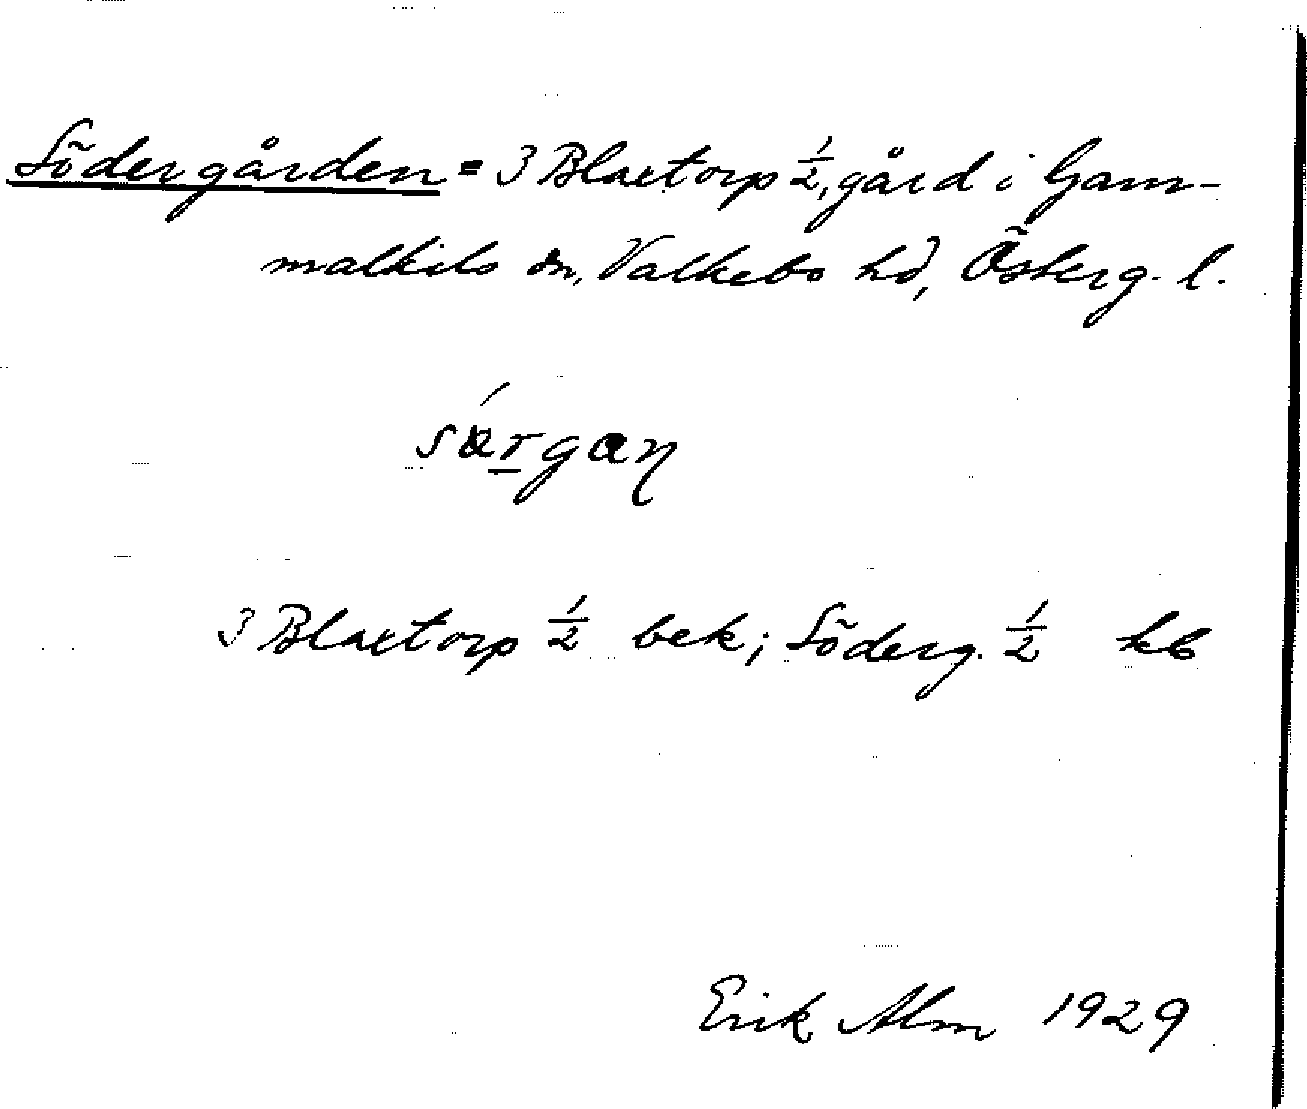 Södergården = 3 Blaxtorp 1/2, gård i Gam-
malkils sn, Valkebo hd, Österg. l.
3 Blaxtorp 1/2 bek; Söderg. 1/2 kb
Erik Alm 1929